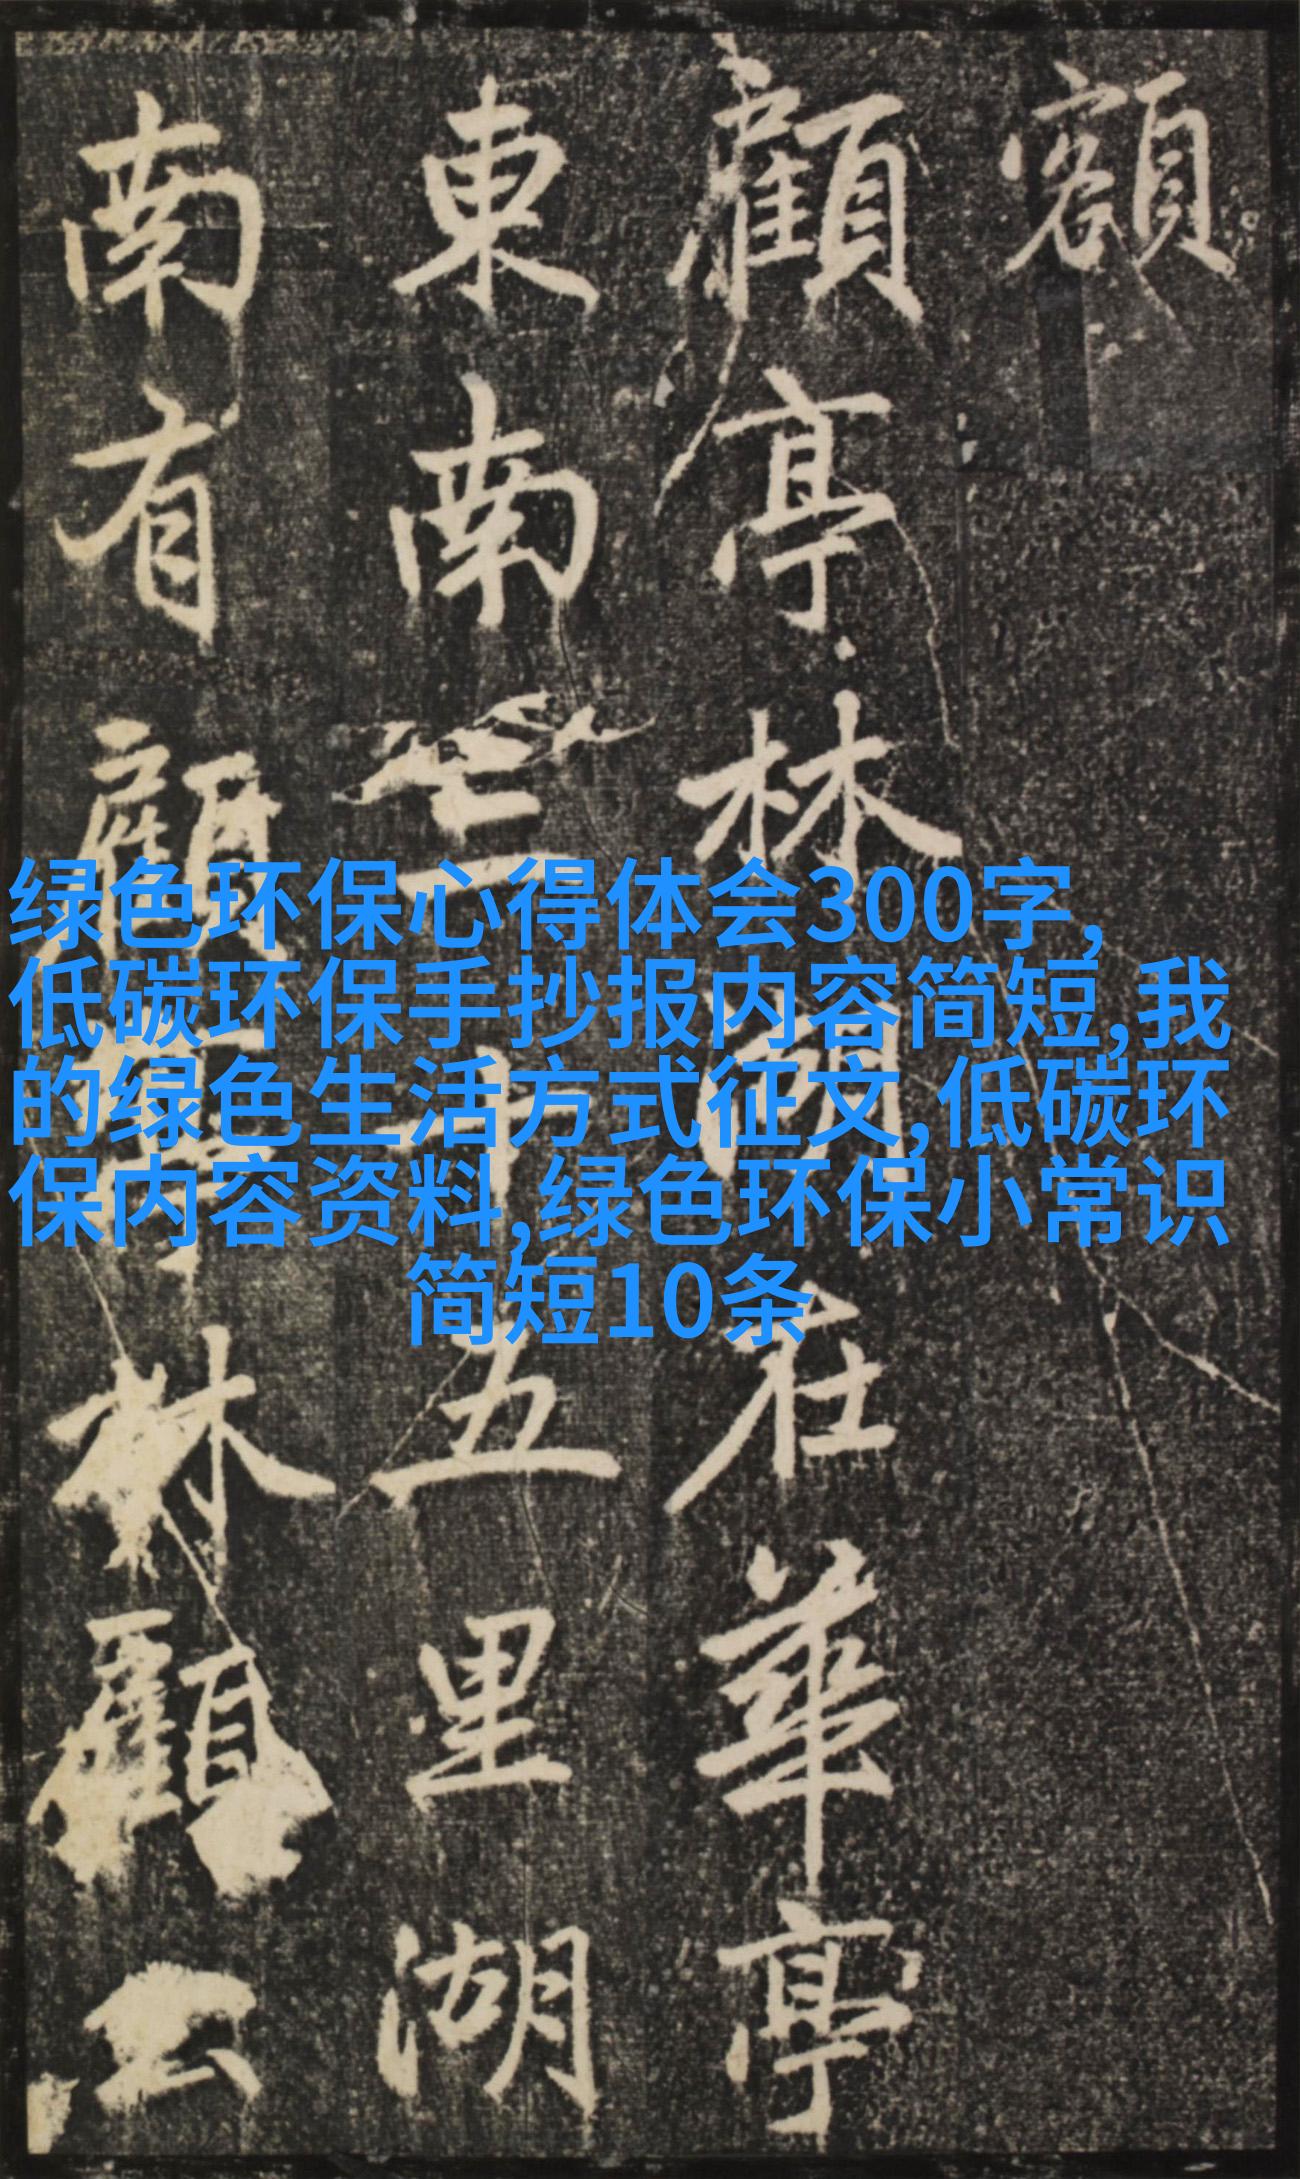 額
顧亭林湖在華亭
東南三十五里湖
南有顧野林顧公
绿色环保心得体会300字,
低碳环保手抄报内容简短,我
的绿色生活方式征文,低碳环
保内容资料,绿色环保小常识
简短10条